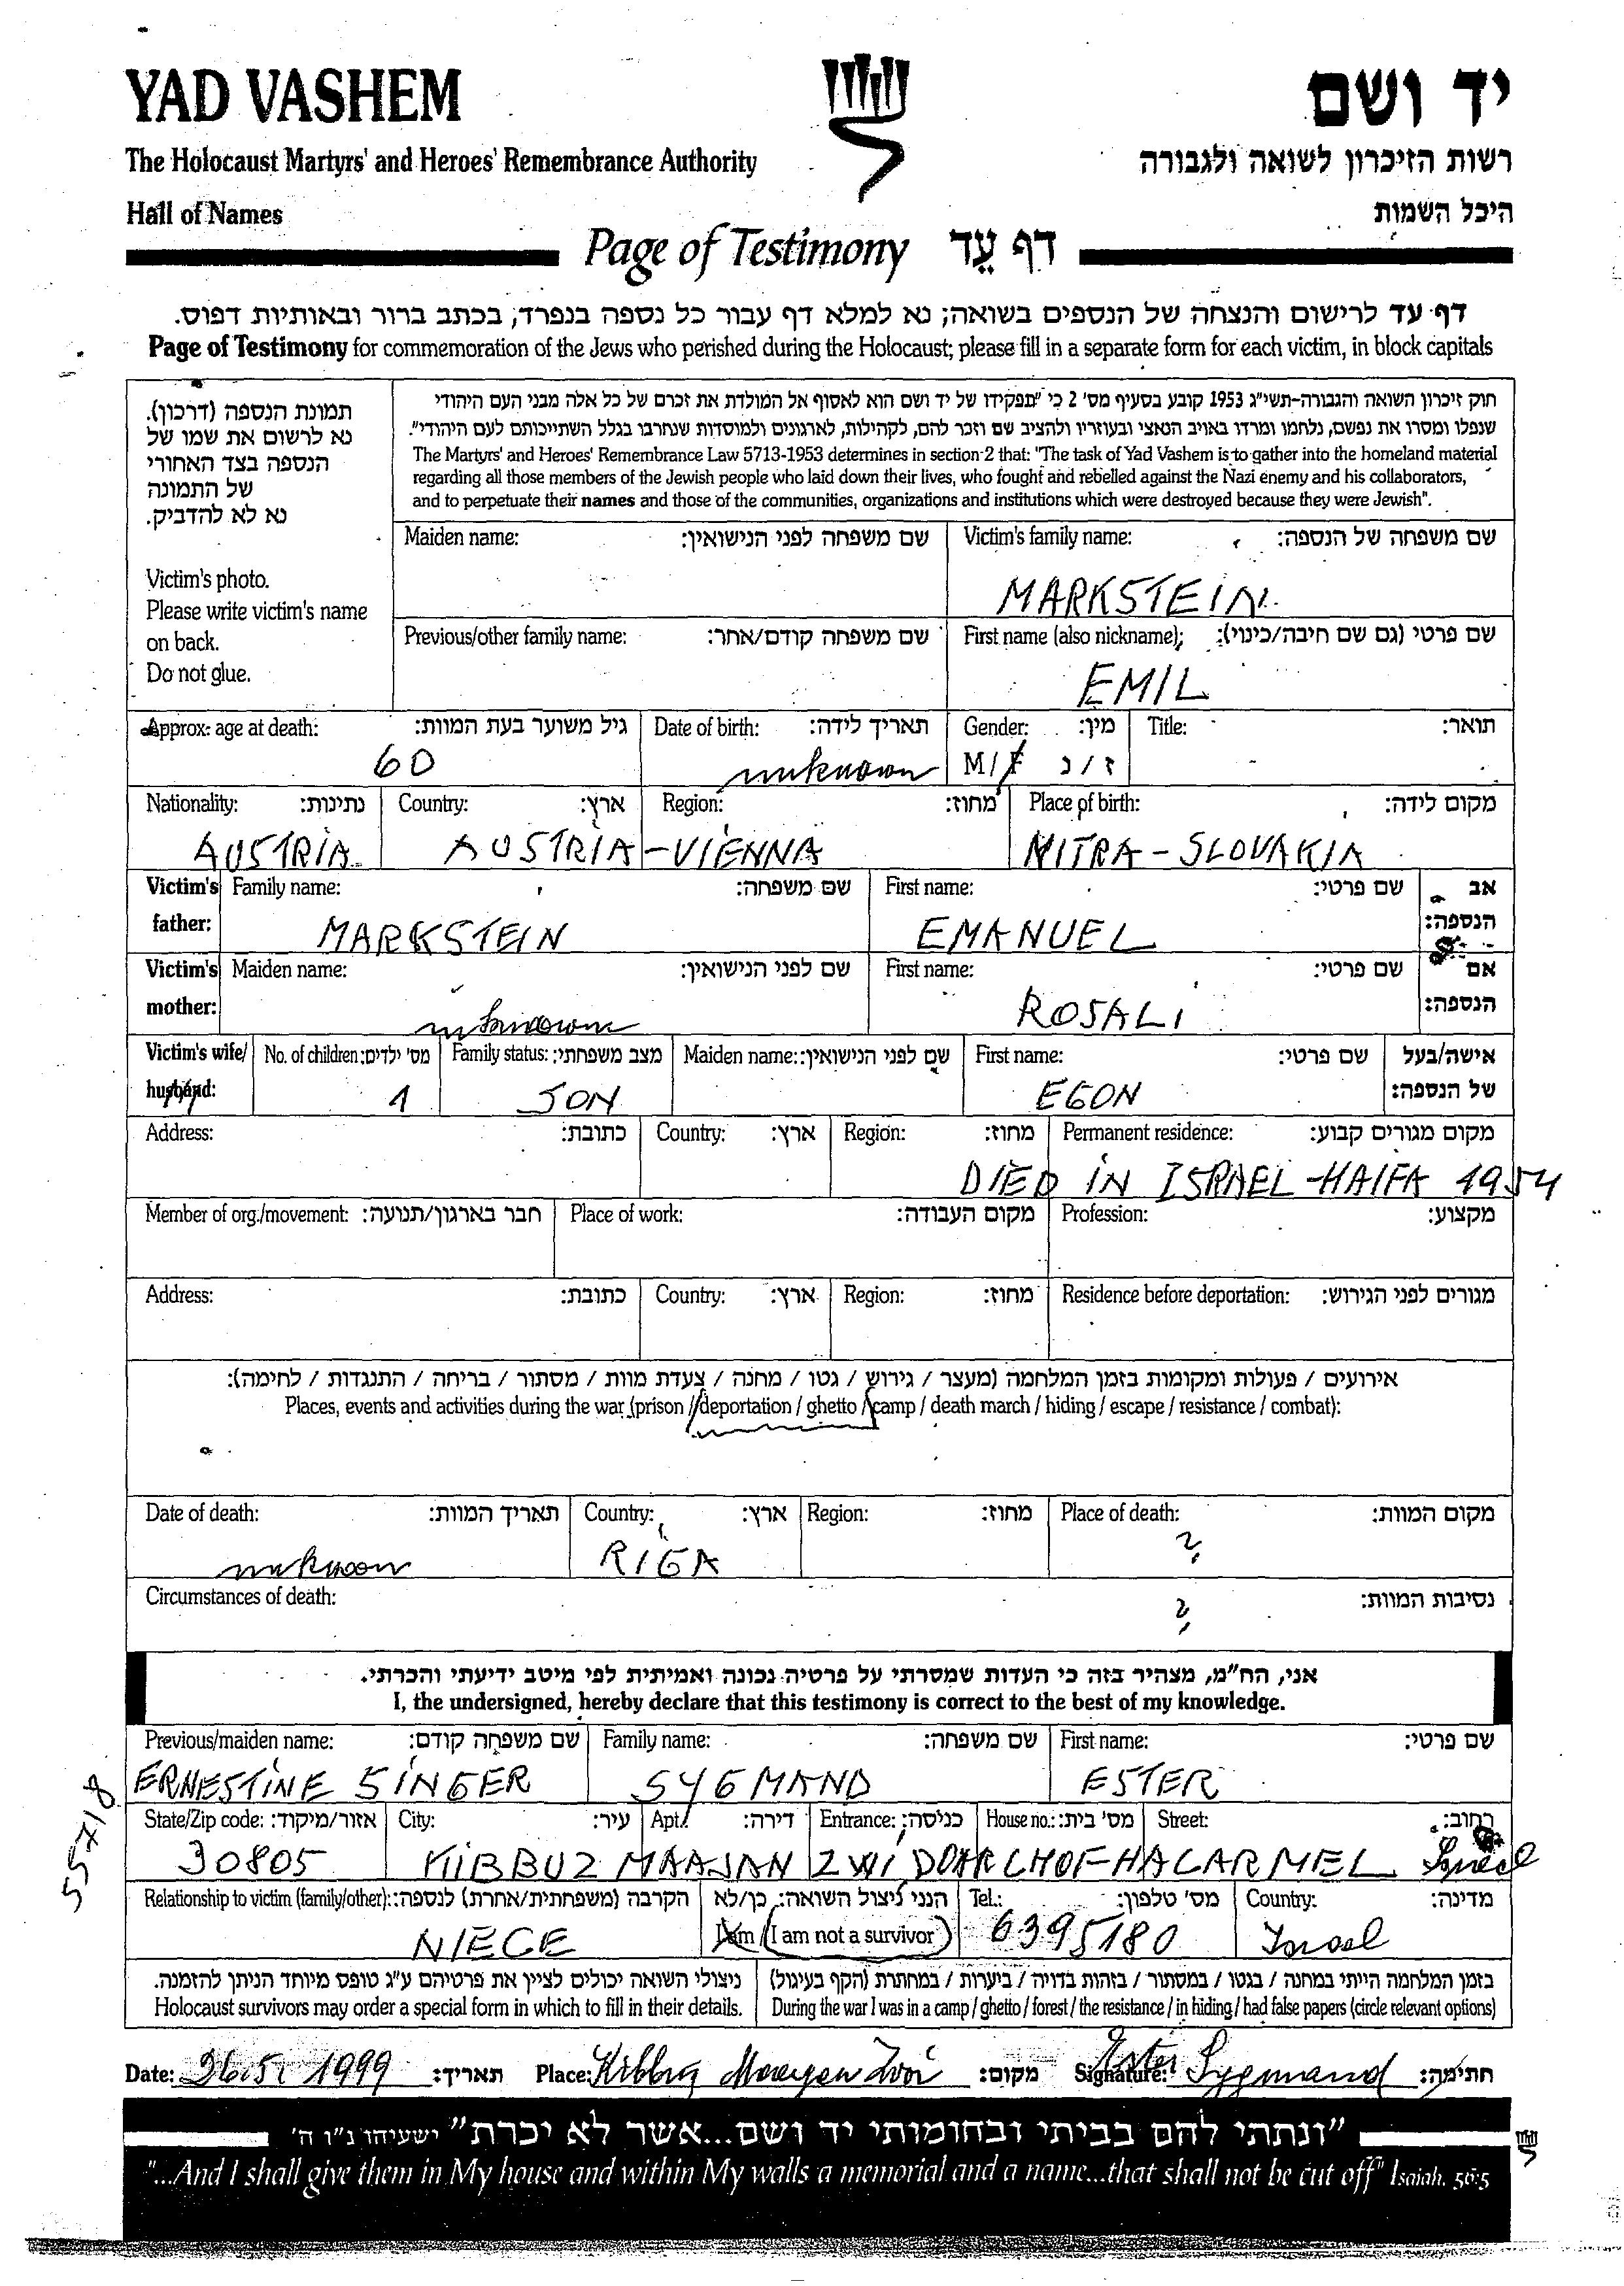 YAD VASHEM
יד ושם
The Holocaust Martyrs' and Heroes' Remembrance Authority
רשות הזיכרון לשואה ולגבורה
Hall of Names
היכל השמות
Page of Testimony דף עֵד
דף עד לרישום והנצחה של הנספים בשואה; נא למלא דף עבור כל נספה בנפרד, בכתב ברור ובאותיות דפוס.
Page of Testimony for commemoration of the Jews who perished during the Holocaust; please fill in a separate form for each victim, in block capitals
תמונת הנספה (דרכון).
נא לרשום את שמו של
הנספה בצד האחורי
של התמונה
נא לא להדביק.
Victim's photo.
Please write victim's name
on back.
Do not glue.
חוק זיכרון השואה והגבורה-תשי"ג 1953 קובע בסעיף מס' 2 כי "תפקידו של יד ושם הוא לאסוף אל המולדת את זכרם של כל אלה מבני העם היהודי
שנפלו ומסרו את נפשם, נלחמו ומרדו באויב הנאצי ובעוזריו ולהציב שם וזכר להם, לקהילות, לארגונים ולמוסדות שנחרבו בגלל השתייכותם לעם היהודי".
The Martyrs' and Heroes' Remembrance Law 5713-1953 determines in section 2 that: "The task of Yad Vashem is to gather into the homeland material
regarding all those members of the Jewish people who laid down their lives, who fought and rebelled against the Nazi enemy and his collaborators,
and to perpetuate their names and those of the communities, organizations and institutions which were destroyed because they were Jewish".
Maiden name: שם משפחה לפני הנישואין: Victim's family name: שם משפחה של הנספה:
MARKSTEIN
Previous/other family name: שם משפחה קודם/אחר: First name (also nickname): שם פרטי (גם שם חיבה/כינוי):
EMIL
Approx. age at death: גיל משוער בעת המוות: Date of birth: תאריך לידה: Gender: מין: Title: תואר:
60 unknown M/F ז/נ
Nationality: נתינות: Country: ארץ: Region: מחוז: Place of birth: מקום לידה:
AUSTRIA AUSTRIA-VIENNA NITRA-SLOVAKIA
Victim's father: Family name: שם משפחה: First name: שם פרטי: אב הנספה:
MARKSTEIN EMANUEL
Victim's mother: Maiden name: שם לפני הנישואין: First name: שם פרטי: אם הנספה:
unknown ROSALI
Victim's wife/husband: No. of children: מס' ילדים: Family status: מצב משפחתי: Maiden name: שם לפני הנישואין: First name: שם פרטי: אישה/בעל של הנספה:
1 SON EGON
Address: כתובת: Country: ארץ: Region: מחוז: Permanent residence: מקום מגורים קבוע:
DIED IN ISRAEL-HAIFA 1954
Member of org./movement: חבר בארגון/תנועה: Place of work: מקום העבודה: Profession: מקצוע:
Address: כתובת: Country: ארץ: Region: מחוז: Residence before deportation: מגורים לפני הגירוש:
אירועים / פעולות ומקומות בזמן המלחמה (מעצר / גירוש / גטו / מחנה / צעדת מוות / מסתור / בריחה / התנגדות / לחימה):
Places, events and activities during the war (prison / deportation / ghetto / camp / death march / hiding / escape / resistance / combat):
Date of death: תאריך המוות: Country: ארץ: Region: מחוז: Place of death: מקום המוות:
unknown RIGA ?
Circumstances of death: נסיבות המוות:
?
אני, הח"מ, מצהיר בזה כי העדות שמסרתי על פרטיה נכונה ואמיתית לפי מיטב ידיעתי והכרתי.
I, the undersigned, hereby declare that this testimony is correct to the best of my knowledge.
Previous/maiden name: שם משפחה קודם: Family name: שם משפחה: First name: שם פרטי:
ERNESTINE SINGER SYGMAND ESTER
State/Zip code: אזור/מיקוד: City: עיר: Apt.: דירה: Entrance: כניסה: House no.: מס' בית: Street: רחוב:
30805 KIBBUZ MAAJAN ZWI DOAR CHOF HACARMEL Israel
55718
Relationship to victim (family/other): הקרבה (משפחתית/אחרת) לנספה: הנני ניצול השואה: כן/לא Tel.: מס' טלפון: Country: מדינה:
NIECE I am / I am not a survivor 6395180 Israel
ניצולי השואה יכולים לציין את פרטיהם ע"ג טופס מיוחד הניתן להזמנה.
Holocaust survivors may order a special form in which to fill in their details.
בזמן המלחמה הייתי במחנה / בגטו / במסתור / בזהות בדויה / ביערות / במחתרת (הקף בעיגול)
During the war I was in a camp / ghetto / forest / the resistance / in hiding / had false papers (circle relevant options)
Date: 26.5. 1999 תאריך: Place: Kibbuz Maayan Zwi מקום: Signature: Ester Sygmand חתימה:
"ונתתי להם בביתי ובחומותי יד ושם...אשר לא יכרת" ישעיהו נ"ו ה'
"...And I shall give them in My house and within My walls a memorial and a name...that shall not be cut off" Isaiah. 56:5